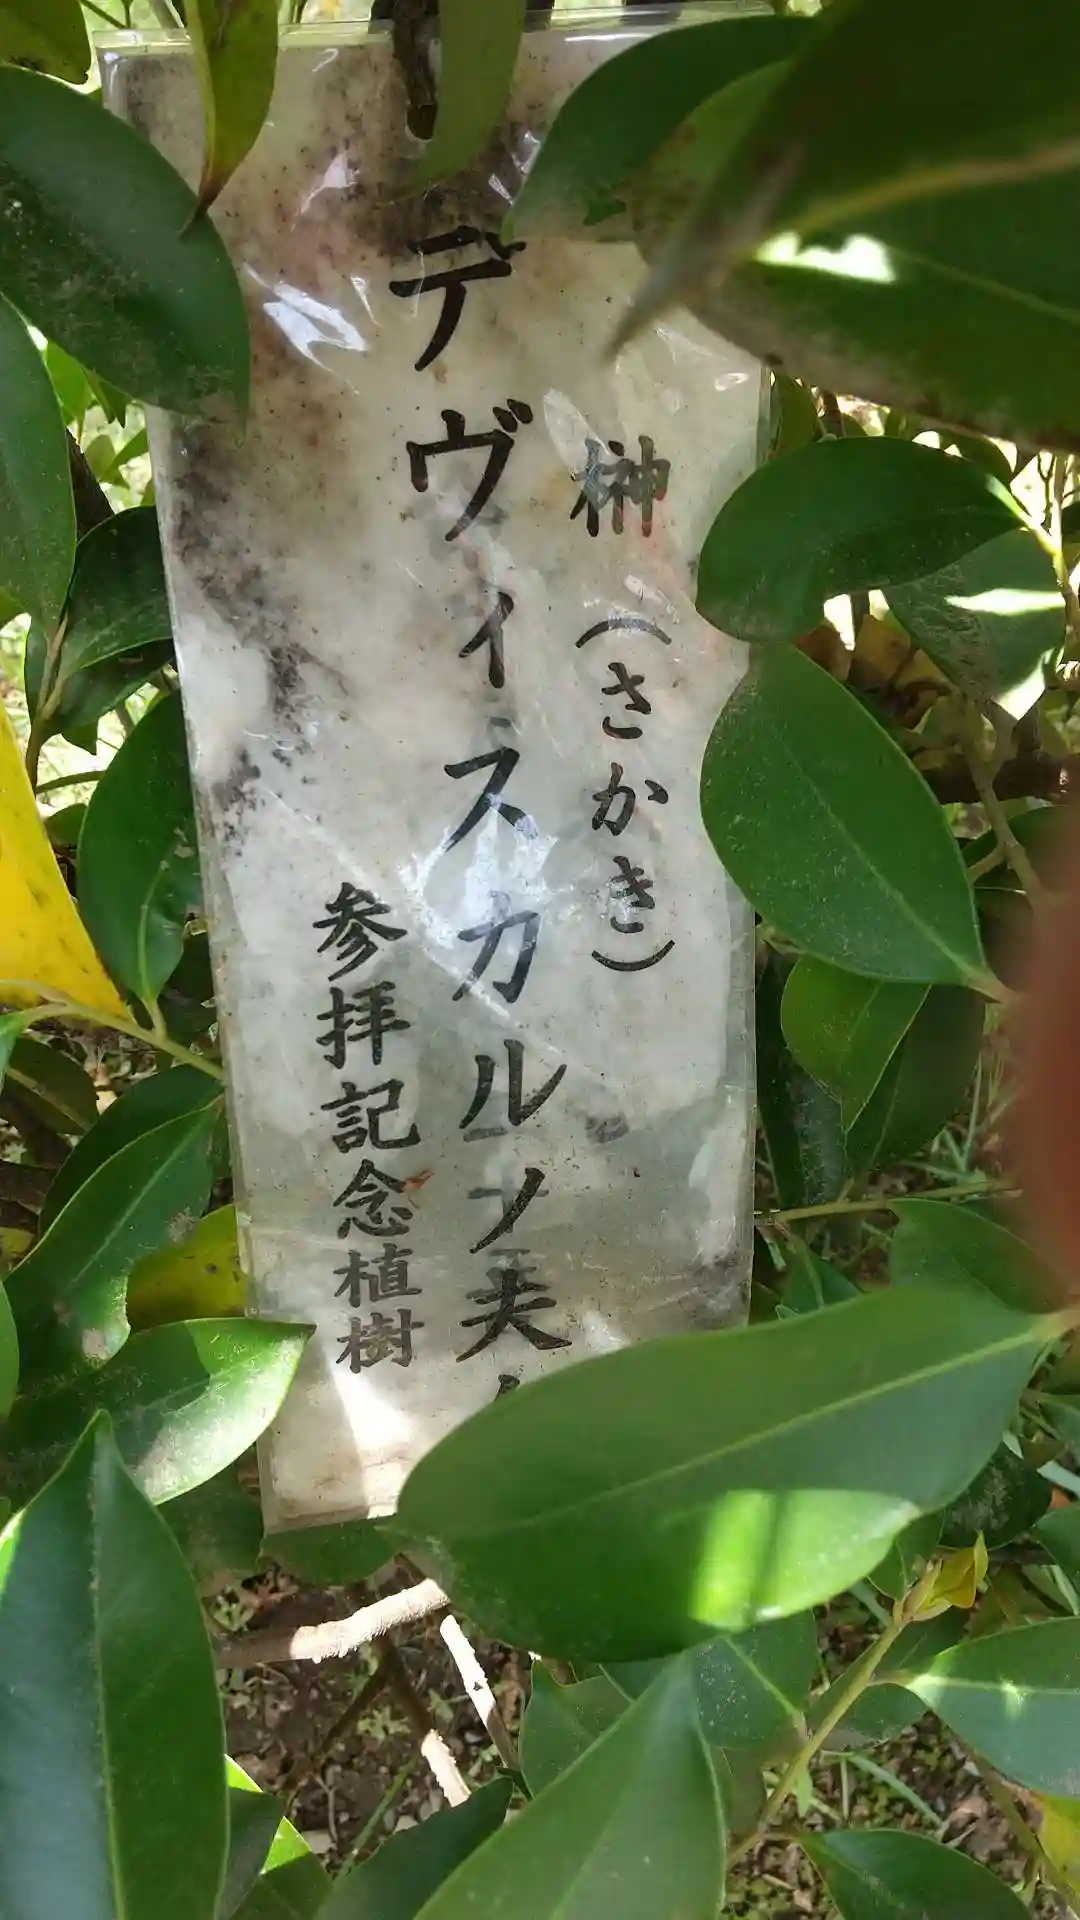 榊（さかき）
デヴィスカルノ夫
参拝記念植樹